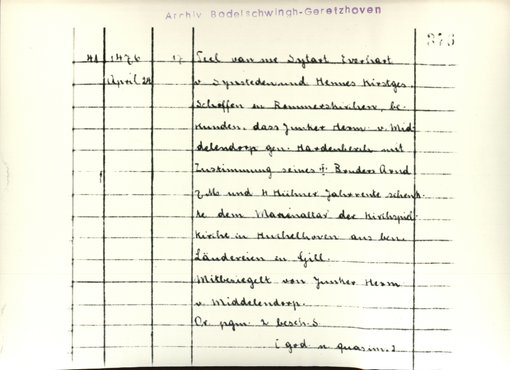 Archiv Bodelschwingh-Geretzhoven
373
41 1476 17 Teel van me Sylart Everhart
April 24 v Synsteden und Hennes Kirstges,
Schöffen in Rommerskirchen, be-
kunden, dass Junker Herm v. Mid-
delendorp gen. Hardenberch mit
Zustimmung seines Bruders Arnd
7 M und 4 Hühner Jahrrente schenk-
te dem Marienaltar der Kirchspiel
kirche in Huchelhoven aus ben.
Ländereien in Gill.
Mitbesiegelt von Junker Herm
v. Middelendorp.
Or. pgm. 2 besch. S
(god. n quasim.)